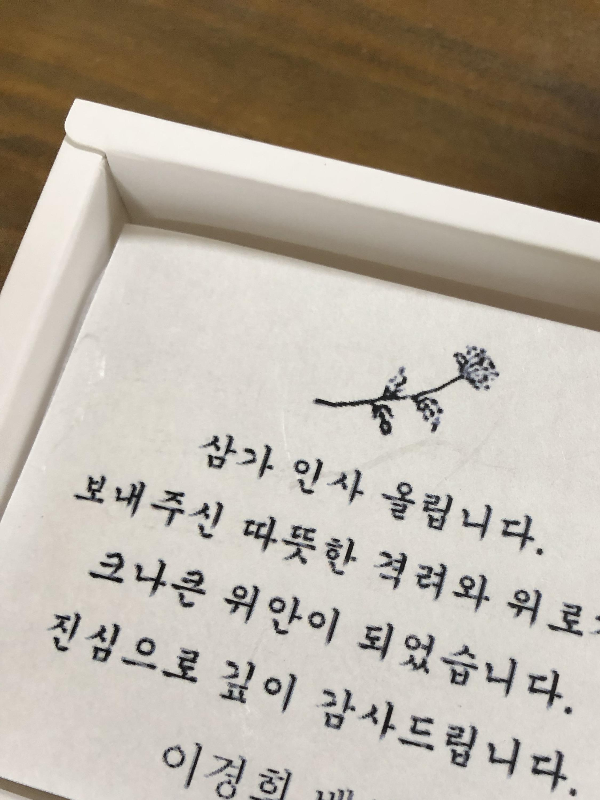 삼가 인사 올립니다.
보내주신 따뜻한 격려와 위로
크나큰 위안이 되었습니다.
진심으로 깊이 감사드립니다.
이경희